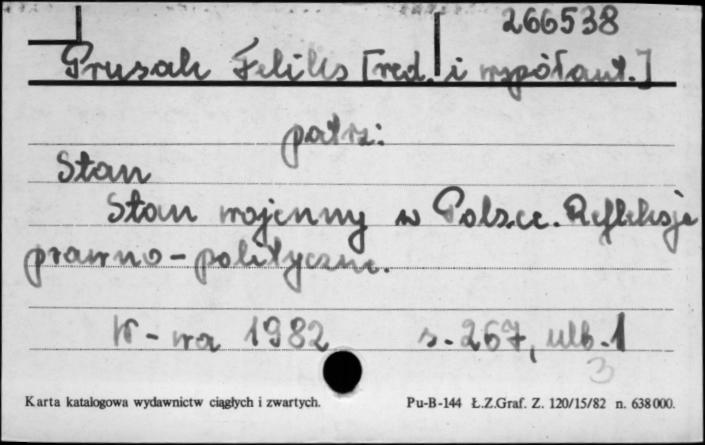 266538
Prusak Feliks [red. i współaut.]
patrz:
Stan
Stan wojenny w Polsce. Refleksje
prawno-polityczne.
W-wa 1982 s. 267, ulb. 1
3
Karta katalogowa wydawnictw ciągłych i zwartych. Pu-B-144 Ł.Z.Graf. Z. 120/15/82 n. 638000.